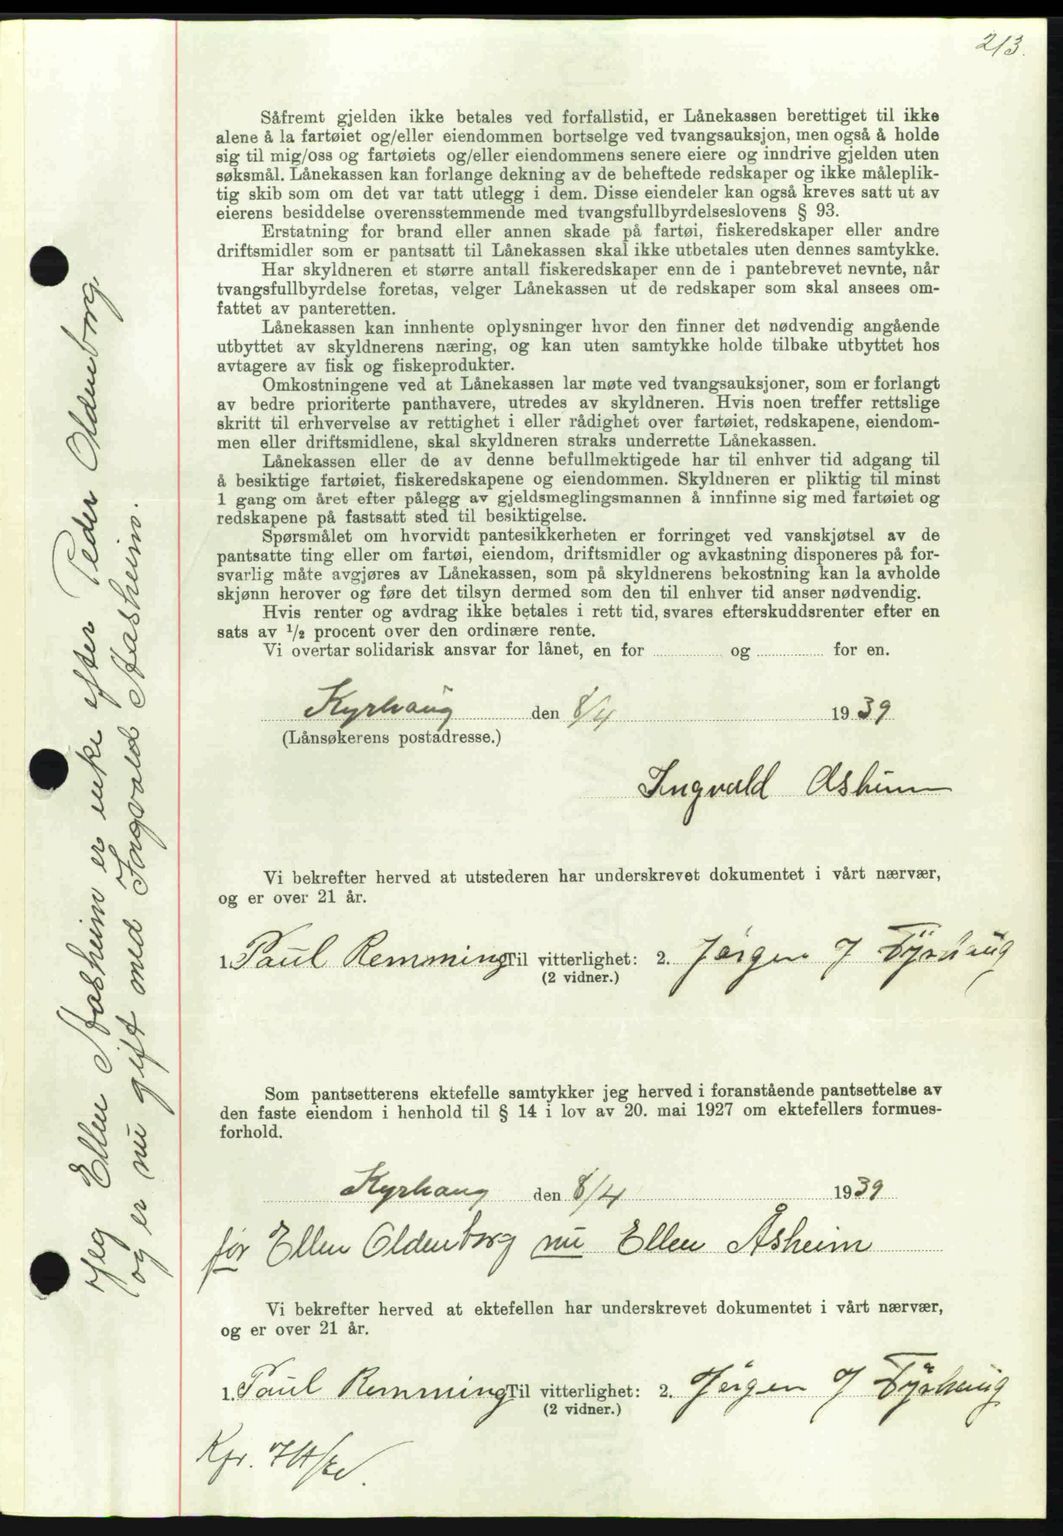 213.
Såfremt gjelden ikke betales ved forfallstid, er Lånekassen berettiget til ikke
alene å la fartøiet og/eller eiendommen bortselge ved tvangsauksjon, men også å holde
sig til mig/oss og fartøiets og/eller eiendommens senere eiere og inndrive gjelden uten
søksmål. Lånekassen kan forlange dekning av de beheftede redskaper og ikke målepliktig
tig skib som om det var tatt utlegg i dem. Disse eiendeler kan også kreves satt ut av
eierens besiddelse overensstemmende med tvangsfullbyrdelseslovens § 93.
Erstatning for brand eller annen skade på fartøi, fiskeredskaper eller andre
driftsmidler som er pantsatt til Lånekassen skal ikke utbetales uten dennes samtykke.
Har skyldneren et større antall fiskeredskaper enn de i pantebrevet nevnte, når
tvangsfullbyrdelse foretas, velger Lånekassen ut de redskaper som skal ansees om-
fattet av panteretten.
Lånekassen kan innhente oplysninger hvor den finner det nødvendig angående
utbyttet av skyldnerens næring, og kan uten samtykke holde tilbake utbyttet hos
avtagere av fisk og fiskeprodukter.
Omkostningene ved at Lånekassen lar møte ved tvangsauksjoner, som er forlangt
av bedre prioriterte panthavere, utredes av skyldneren. Hvis noen treffer rettslige
skritt til erhvervelse av rettighet i eller rådighet over fartøiet, redskapene, eiendom-
men eller driftsmidlene, skal skyldneren straks underrette Lånekassen.
Lånekassen eller de av denne befullmektigede har til enhver tid adgang til
å besiktige fartøiet, fiskeredskapene og eiendommen. Skyldneren er pliktig til minst
1 gang om året efter pålegg av gjeldsmeglingsmannen å innfinne sig med fartøiet og
redskapene på fastsatt sted til besiktigelse.
Spørsmålet om hvorvidt pantesikkerheten er forringet ved vanskjøtsel av de
pantsatte ting eller om fartøi, eiendom, driftsmidler og avkastning disponeres på for-
svarlig måte avgjøres av Lånekassen, som på skyldnerens bekostning kan la avholde
skjønn herover og føre det tilsyn dermed som den til enhver tid anser nødvendig.
Hvis renter og avdrag ikke betales i rett tid, svares efterskuddsrenter efter en
sats av 1/2 procent over den ordinære rente.
Vi overtar solidarisk ansvar for lånet, en for ........ og ........ for en.
Kyrhaug den 8/4 1939
(Lånsøkerens postadresse.)
Ingvald Åsheim
Vi bekrefter herved at utstederen har underskrevet dokumentet i vårt nærvær,
og er over 21 år.
1. Paul Remming Til vitterlighet: 2. Jørgen J Fyrhaug
(2 vidner.)
Som pantsetterens ektefelle samtykker jeg herved i foranstående pantsettelse av
den faste eiendom i henhold til § 14 i lov av 20. mai 1927 om ektefellers formues-
forhold.
Kyrhaug den 8/4 1939
før Ellen Oldenborg nu Ellen Åsheim
Vi bekrefter herved at ektefellen har underskrevet dokumentet i vårt nærvær,
og er over 21 år.
1. Paul Remming Til vitterlighet: 2. Jørgen J Fyrhaug
(2 vidner.)
Kfr.
Jeg Ellen Aasheim er enke efter Peder Oldenborg
og er nu gift med Ingvald Aasheim.